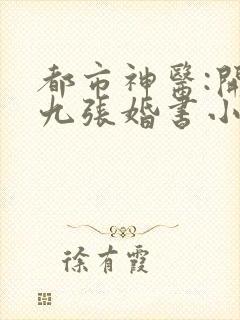 都市神醫:開
九張婚書小
徐有霞